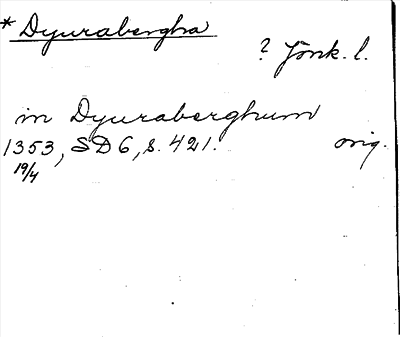 * Dyurabergha
? Jönk. l.
in Dyuraberghum
1353, SD 6, s. 421. orig.
19/4